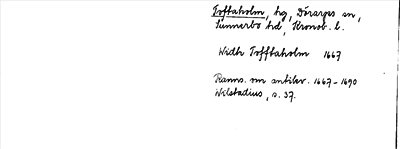 Toftaholm, hg, Dörarps sn,
Sunnerbo hd, Kronob. l.
Widh Tofftaholm 1667
Ranns. om antikv. 1667-1690
Wilstadius, s. 37.